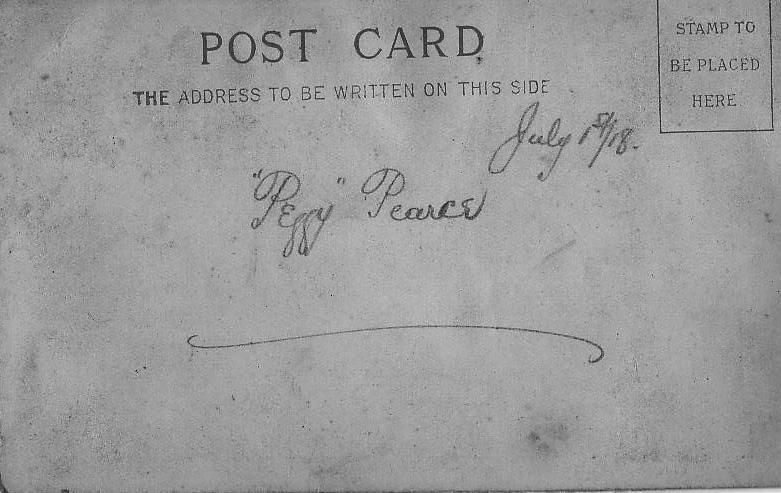 POST CARD
THE ADDRESS TO BE WRITTEN ON THIS SIDE
STAMP TO
BE PLACED
HERE
July 1st/18.
"Peggy" Pearce